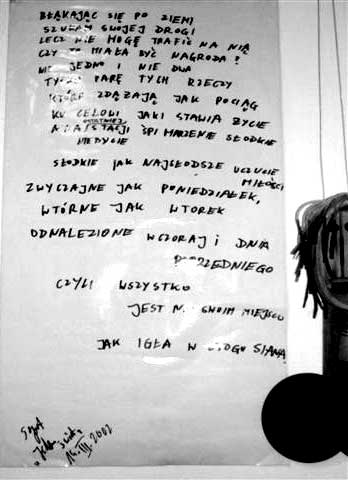 BŁĄKAJĄC SIĘ PO ZIEMI
SZUKAM SWOJEJ DROGI
LECZ NIE MOGĘ TRAFIĆ NA NIĄ
CZY TO MIAŁA BYĆ NAGRODA?
NIE JEDNO I NIE DWA
TYLKO PARĘ TYCH RZECZY
KTÓRE ZDĄŻAJĄ JAK POCIĄG
KU CELOWI JAKI STAWIA ŻYCIE
OSTATNIEJ
NA STACJI ŚPI MARZENIE SŁODKIE
SŁODKIE JAK NAJSŁODSZE UCZUCIE
MIŁOŚCI
ZWYCZAJNE JAK PONIEDZIAŁEK,
WTÓRNE JAK WTOREK
ODNALEZIONE WCZORAJ I DNIA
POPRZEDNIEGO
CZYLI WSZYSTKO
JEST NA SWOIM MIEJSCU
JAK IGŁA W STOGU SIANA